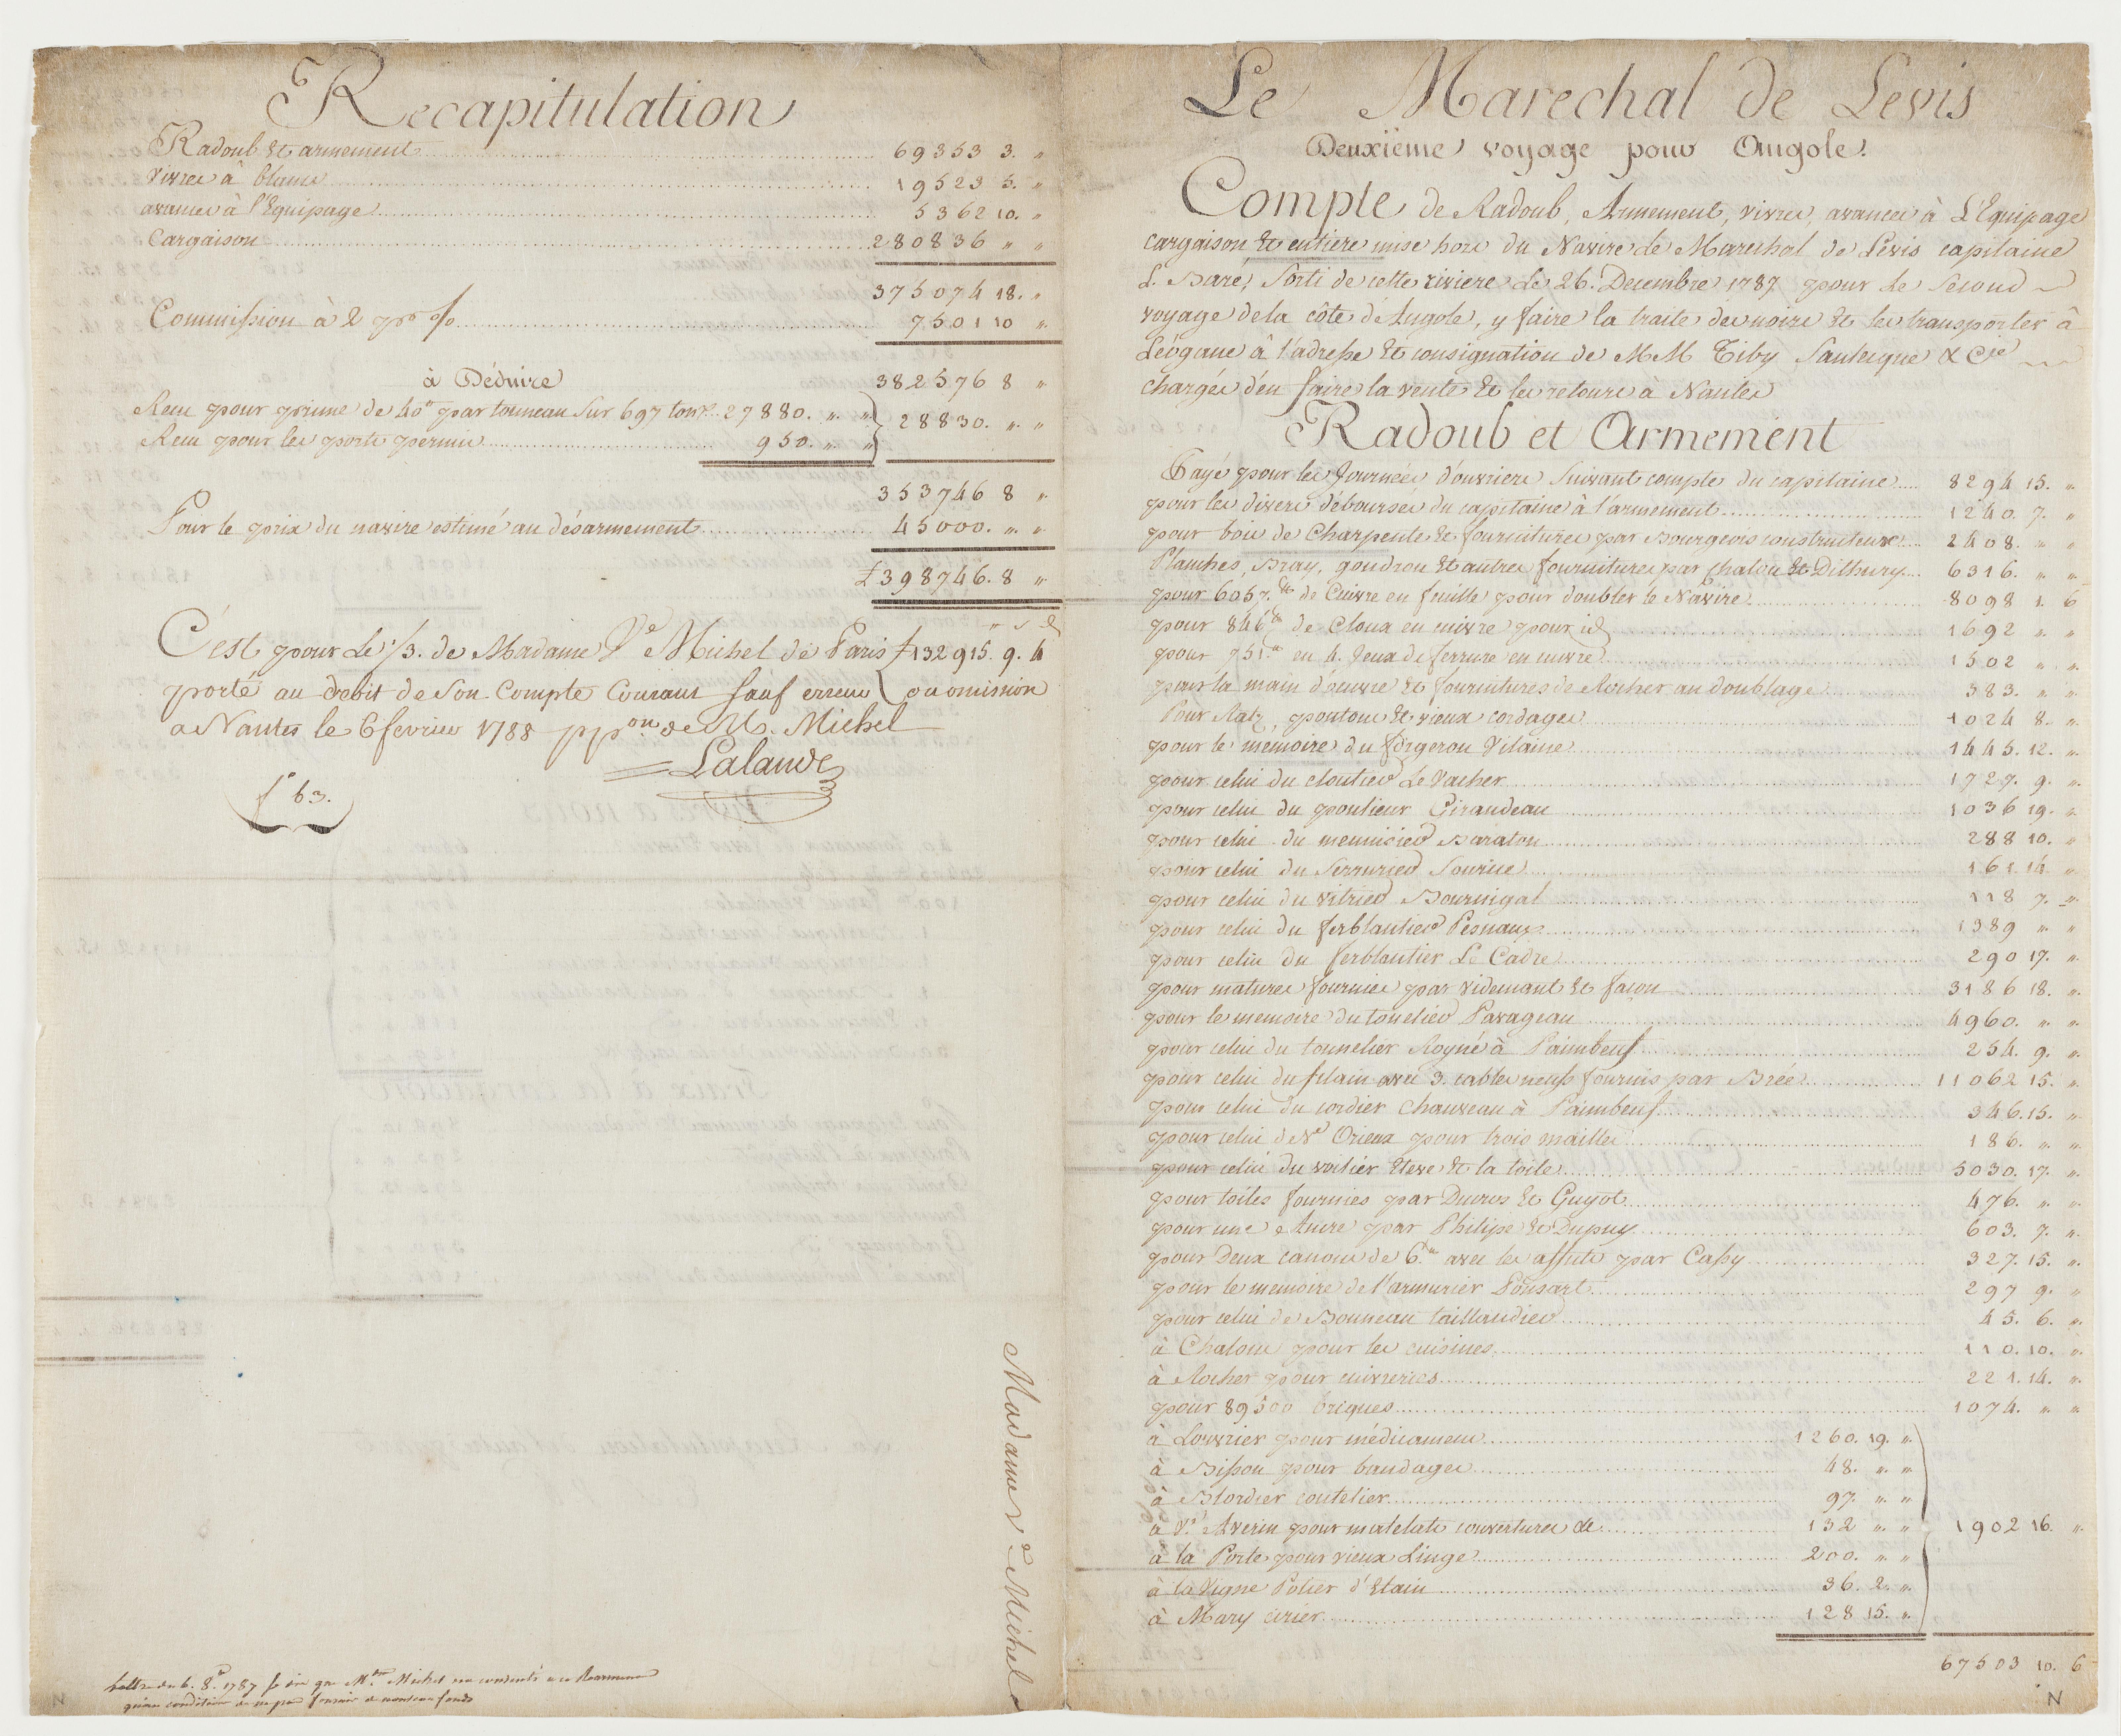 Recapitulation
Radoub et armement 69353 3. "
vivres à blancs 19523 5. "
avances à l'Equipage 5362 10. "
Cargaison 280836 " "
375074 18. "
Commission à 2 pr % 7501 10 "
à Déduire 382576 8 "
Recu pour prime de 40tt par tonneau Sur 697 tonx 27880. " " 28830. " "
Recu pour les ports permis 950. " "
353746 8 "
Pour le prix du navire estimé au désarmement 45000. " "
£ 398746. 8 "
C'est pour le 1/3. de Madame Ve Michel de Paris £ 132915. 9. 4
porté au debit de Son Compte Courant Sauf erreur ou omission
a Nantes le 6 fevrier 1788 pp.on de M. Michel
Lalande
fo 63.
Madame Ve Michel
Lettre du 6. 8bre 1787 qe Mde Michel
Le Marechal de Levis
Deuxième voyage pour Angole.
Compte de Radoub, Armement, vivres, avances à L'Equipage
cargaison et entiere mise hors du Navire le Marechal de Levis capitaine
L. Baré, Sorti de cette riviere Le 26. Decembre 1787 pour le Second
voyage de la côte d'Angole, y faire la traite des noirs et les transporter à
Léogane à l'adresse et consignation de MM Tiby Santeigne & Cie
chargés d'en faire la vente et les retours à Nantes
Radoub et Armement
Payé pour les Journées d'ouvriers Suivant compte du capitaine 8294 15. "
pour les divers déboursés du capitaine à l'armement 1240 7. "
pour bois de Charpente et fournitures par Bourgeois constructeur 2408. " "
Planches, Bray, goudron et autres fournitures par chalon et Dithury 6316. " "
pour 6057.tt de Cuivre en feuille pour doubler le Navire 8098 1. 6
pour 846tt de Cloux en cuivre pour id 1692 " "
pour 751.tt en 4. Jeux de ferrure en cuivre 1502 " "
pour la main d'oeuvre et fournitures de Rocher au doublage 383. " "
Pour Ratz, pontons et vieux cordages 1024 8. "
pour le mémoire du forgeron Vilaine 1445. 12. "
pour celui du cloutier Le Vacher 1727. 9. "
pour celui du poulieur Giraudeau 1036 19. "
pour celui du menuisier Baraton 288 10. "
pour celui du Serrurier Sourice 161. 14. "
pour celui du vitrier Bournigal 118 7. "
pour celui du ferblantier Pesnaux 1389 " "
pour celui du ferblantier Le Cadre 290 17. "
pour matures fournies par Videmant et façon 3186 18. "
pour le memoire du tonelier Pavageau 4960. " "
pour celui du tonnelier Royné à Paimbeuf 254. 9. "
pour celui du filain avec 3. cables neufs fournis par Brée 11062 15. "
pour celui du cordier Chauveau à Paimbeuf 346. 15. "
pour celui de Ne Orieux pour trois mailles 186. " "
pour celui du voilier Eleve et la toile 5030. 17. "
pour toiles fournies par Ducros et Guyot 476. " "
pour une Ancre par Philipe et Dupuy 603. 7. "
pour Deux canons de 6.tt avec les affuts par Cassy 327. 15. "
pour le memoire de l'armurier Ponsart 297 9. "
pour celui de Bonneau taillandier 45. 6. "
à Chalons pour les cuisines 110. 10. "
à Rocher pour cuivreries 221. 14. "
pour 89500 briques 1074. " "
à Louvrier pour médicamens 1260. 19. "
à Bisson pour bandages 48. " "
à Blordier coutelier 97 " "
à Ve Averin pour matelats couvertures &c 132 " " 1902 16. "
à la Porte pour vieux Linge 200. " "
à la Vigne Potier d'Etain 36. 2. "
à Mary cirier 128 15. "
67503 10. 6
N